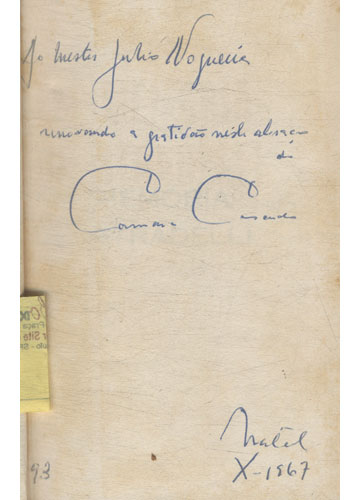 Ao mestre Julio Nogueira
renovando a gratidão neste abraço
do
Camara Cascudo
Natal
X-1967
93